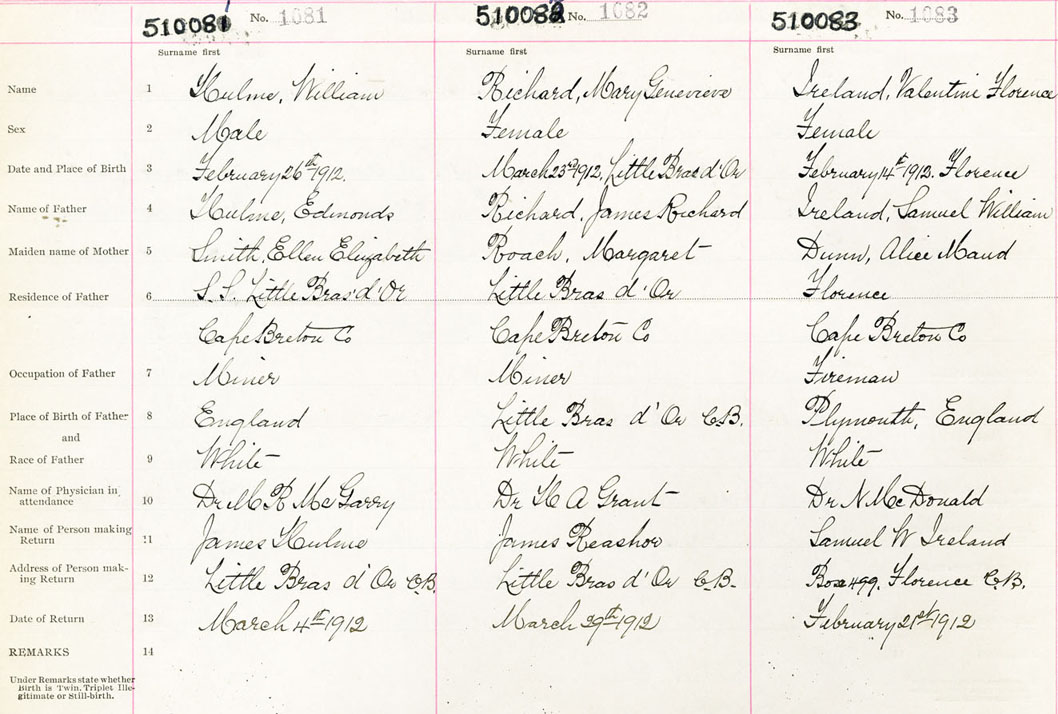 510081 No. 1081 510082 No. 1082 510083 No. 1083
Surname first Surname first Surname first
Name 1 Hulme, William Richard, Mary Genevieve Ireland, Valentine Florence
Sex 2 Male Female Female
Date and Place of Birth 3 February 26th 1912. March 23rd 1912, Little Bras d'Or February 14th 1912. Florence
Name of Father 4 Hulme, Edmonds Richard, James Richard Ireland, Samuel William
Maiden name of Mother 5 Smith, Ellen Elizabeth Roach, Margaret Dunn, Alice Maud
Residence of Father 6 S.S. Little Bras d'Or Little Bras d'Or Florence
Cape Breton Co Cape Breton Co Cape Breton Co
Occupation of Father 7 Miner Miner Fireman
Place of Birth of Father 8 England Little Bras d'Or C.B. Plymouth, England
and
Race of Father 9 White White White
Name of Physician in attendance 10 Dr McR McGarry Dr H A Grant Dr N McDonald
Name of Person making Return 11 James Hulme James Reashor Samuel W Ireland
Address of Person making Return 12 Little Bras d'Or C.B. Little Bras d'Or C.B. Box 499, Florence C.B.
Date of Return 13 March 4th 1912 March 29th 1912 February 21st 1912
REMARKS 14
Under Remarks state whether
Birth is Twin, Triplet Ille-
gitimate or Still-birth.